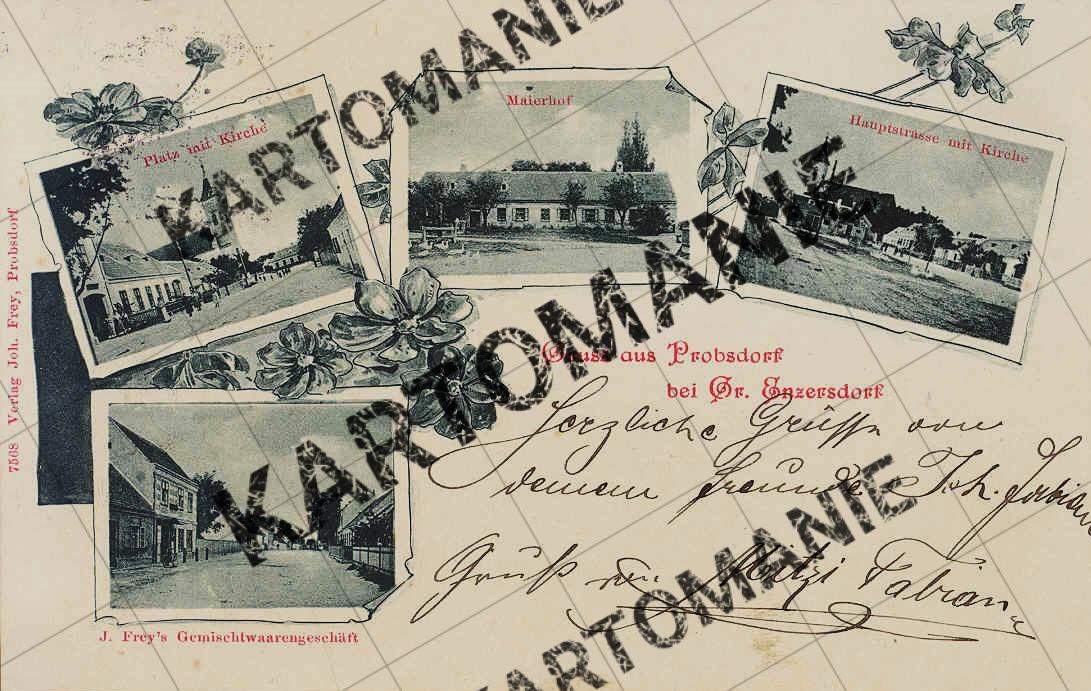 KARTOMANIE
KARTOMANIE
Platz mit Kirche
Maierhof
Hauptstrasse mit Kirche
KARTOMANIE
7568 Verlag Joh. Frey, Probsdorf
Gruss aus Probsdorf
bei Gr. Enzersdorf
Herzliche Grüsse von
deinem Freunde Joh. Fabian
Gruß von Mitzi Fabian
KARTOMANIE
J. Frey's Gemischtwaarengeschäft
KARTOMANIE